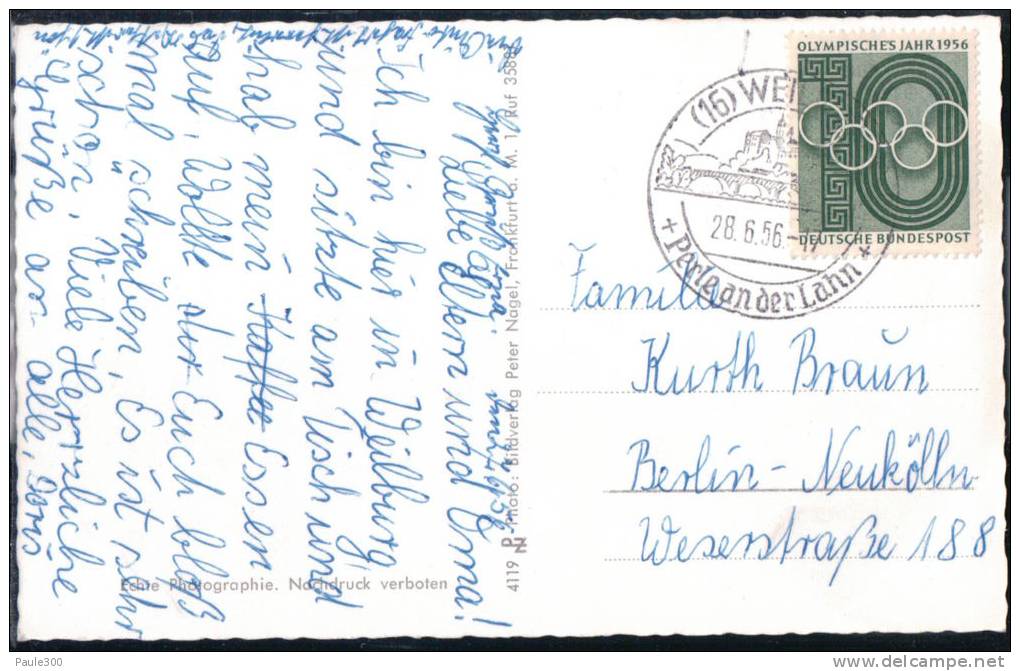 OLYMPISCHES JAHR 1956
DEUTSCHE BUNDESPOST
(16) WEI
28.6.56.-
+ Perle an der Lahn +
Familie
Kurth Braun
Berlin-Neukölln
Weserstraße 188
den 26.6.56
Liebe Eltern und Oma!
Ich bin hier in Weilburg
und sitzte am Tisch und
hab mein Kaffee Essen
auf. Wollte Euch bloß
mal schreiben, Es ist sehr
schön. Viele Herzliche
Grüße an alle, Doris
4119 P-Photo: Bildverlag Peter Nagel, Frankfurt a. M. 1, Ruf 35883
Echte Photographie. Nachdruck verboten
Paule300
www.delcampe.net